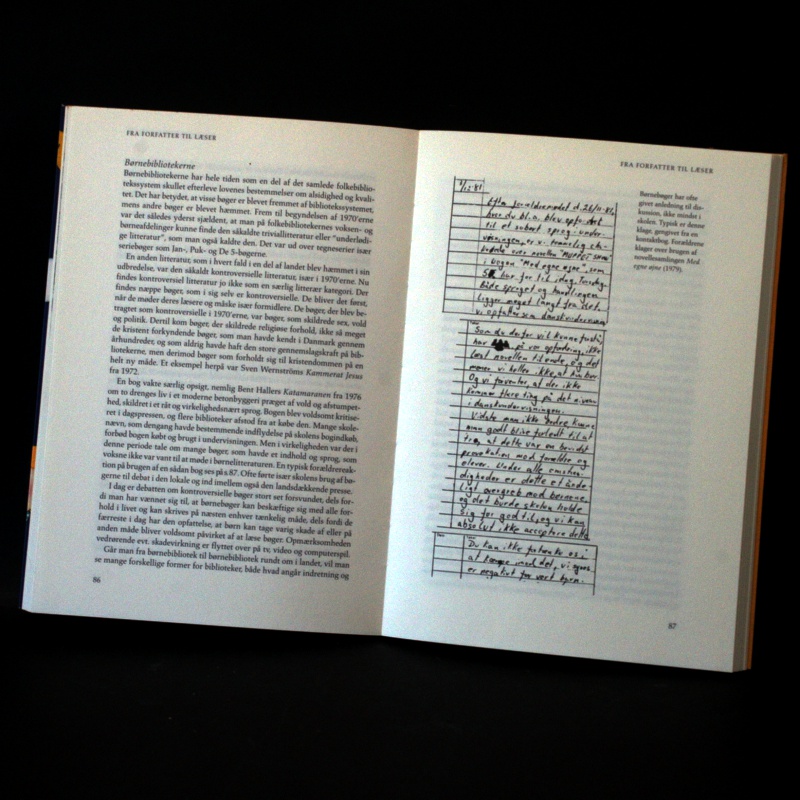 FRA FORFATTER TIL LÆSER
Børnebibliotekerne
Børnebibliotekerne har hele tiden som en del af det samlede folkebiblio-
tekssystem skullet efterleve lovenes bestemmelser om alsidighed og kvali-
tet. Det har betydet, at visse bøger er blevet fremmet af bibliotekssystemet,
mens andre bøger er blevet hæmmet. Frem til begyndelsen af 1970'erne
var det således yderst sjældent, at man på folkebibliotekernes voksen- og
børneafdelinger kunne finde den såkaldte triviallitteratur eller "underlødi-
ge litteratur", som man også kaldte den. Det var ud over tegneserier især
seriebøger som Jan-, Puk- og De 5-bøgerne.
En anden litteratur, som i hvert fald i en del af landet blev hæmmet i sin
udbredelse, var den såkaldt kontroversielle litteratur, især i 1970'erne. Nu
findes kontroversiel litteratur jo ikke som en særlig litterær kategori. Der
findes næppe bøger, som i sig selv er kontroversielle. De bliver det først,
når de møder deres læsere og måske især formidlere. De bøger, der blev be-
tragtet som kontroversielle i 1970'erne, var bøger, som skildrede sex, vold
og politik. Dertil kom bøger, der skildrede religiøse forhold, ikke så meget
de kristent forkyndende bøger, som man havde kendt i Danmark gennem
århundreder, og som aldrig havde haft den store gennemslagskraft på bib-
liotekerne, men derimod bøger som forholdt sig til kristendommen på en
helt ny måde. Et eksempel herpå var Sven Wernströms Kammerat Jesus
fra 1972.
En bog vakte særlig opsigt, nemlig Bent Hallers Katamaranen fra 1976
om to drenges liv i et moderne betonbyggeri præget af vold og afstumpet-
hed, skildret i et råt og virkelighedsnært sprog. Bogen blev voldsomt kritise-
ret i dagspressen, og flere biblioteker afstod fra at købe den. Mange skole-
nævn, som dengang havde bestemmende indflydelse på skolens bogindkøb,
forbød bogen købt og brugt i undervisningen. Men i virkeligheden var der i
denne periode tale om mange bøger, som havde et indhold og sprog, som
voksne ikke var vant til at møde i børnelitteraturen. En typisk forældrereak-
tion på brugen af en sådan bog ses på s.87. Ofte førte især skolens brug af bø-
gerne til debat i den lokale og ind imellem også den landsdækkende presse.
I dag er debatten om kontroversielle bøger stort set forsvundet, dels for-
di man har vænnet sig til, at børnebøger kan beskæftige sig med alle for-
hold i livet og kan skrives på næsten enhver tænkelig måde, dels fordi de
færreste i dag har den opfattelse, at børn kan tage varig skade af eller på
anden måde bliver voldsomt påvirket af at læse bøger. Opmærksomheden
vedrørende evt. skadevirkning er flyttet over på tv, video og computerspil.
Går man fra børnebibliotek til børnebibliotek rundt om i landet, vil man
se mange forskellige former for biblioteker, både hvad angår indretning og
86
FRA FORFATTER TIL LÆSER
1/12-81
Efter forældremødet d. 26/11-81,
hvor du bl.a. blev opfordret
til et sobert sprog i under-
visningen, er vi temmelig cho-
kerede over novellen "MUPPET SHOW"
i bogen "Med egne øjne", som
har for til idag, torsdag.
Både sproget og handlingen
ligger meget langt fra det,
vi opfatter som danskundervisning
Som du derfor vil kunne forstå,
har på vor opfordring, ikke
læst novellen til ende, og det
mener vi heller ikke, at hun bør
Og vi forventer, at der ikke
kommer flere ting på det niveau
i danskundervisningen.
Vidste man ikke bedre, kunne
man godt blive forledt til at
tro, at dette var en bevidst
provokation mod forældre og
elever. Under alle omstæn-
digheder er dette et ånde-
ligt overgreb mod børnene,
og det burde skolen holde
sig for god til, og vi kan
absolut ikke acceptere dette
Du kan ikke fortænke os i
at reagere mod det, vi synes
er negativt for vort barn.
Børnebøger har ofte
givet anledning til dis-
kussion, ikke mindst i
skolen. Typisk er denne
klage, gengivet fra en
kontaktbog. Forældrene
klager over brugen af
novellesamlingen Med
egne øjne (1979).
87